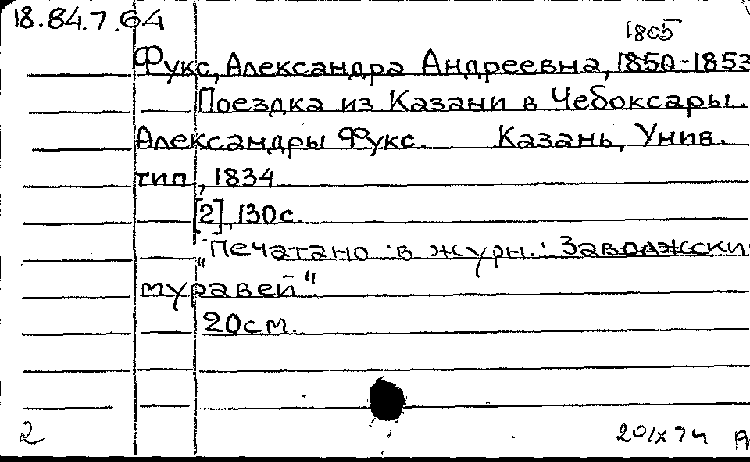 18.84.7.64
1805
Фукс, Александра Андреевна, 1850-1853
Поездка из Казани в Чебоксары.
Александры Фукс. Казань, Унив.
тип., 1834
[2], 130с.
„Печатано в журн.: Заволжски
муравей"
20см.
2